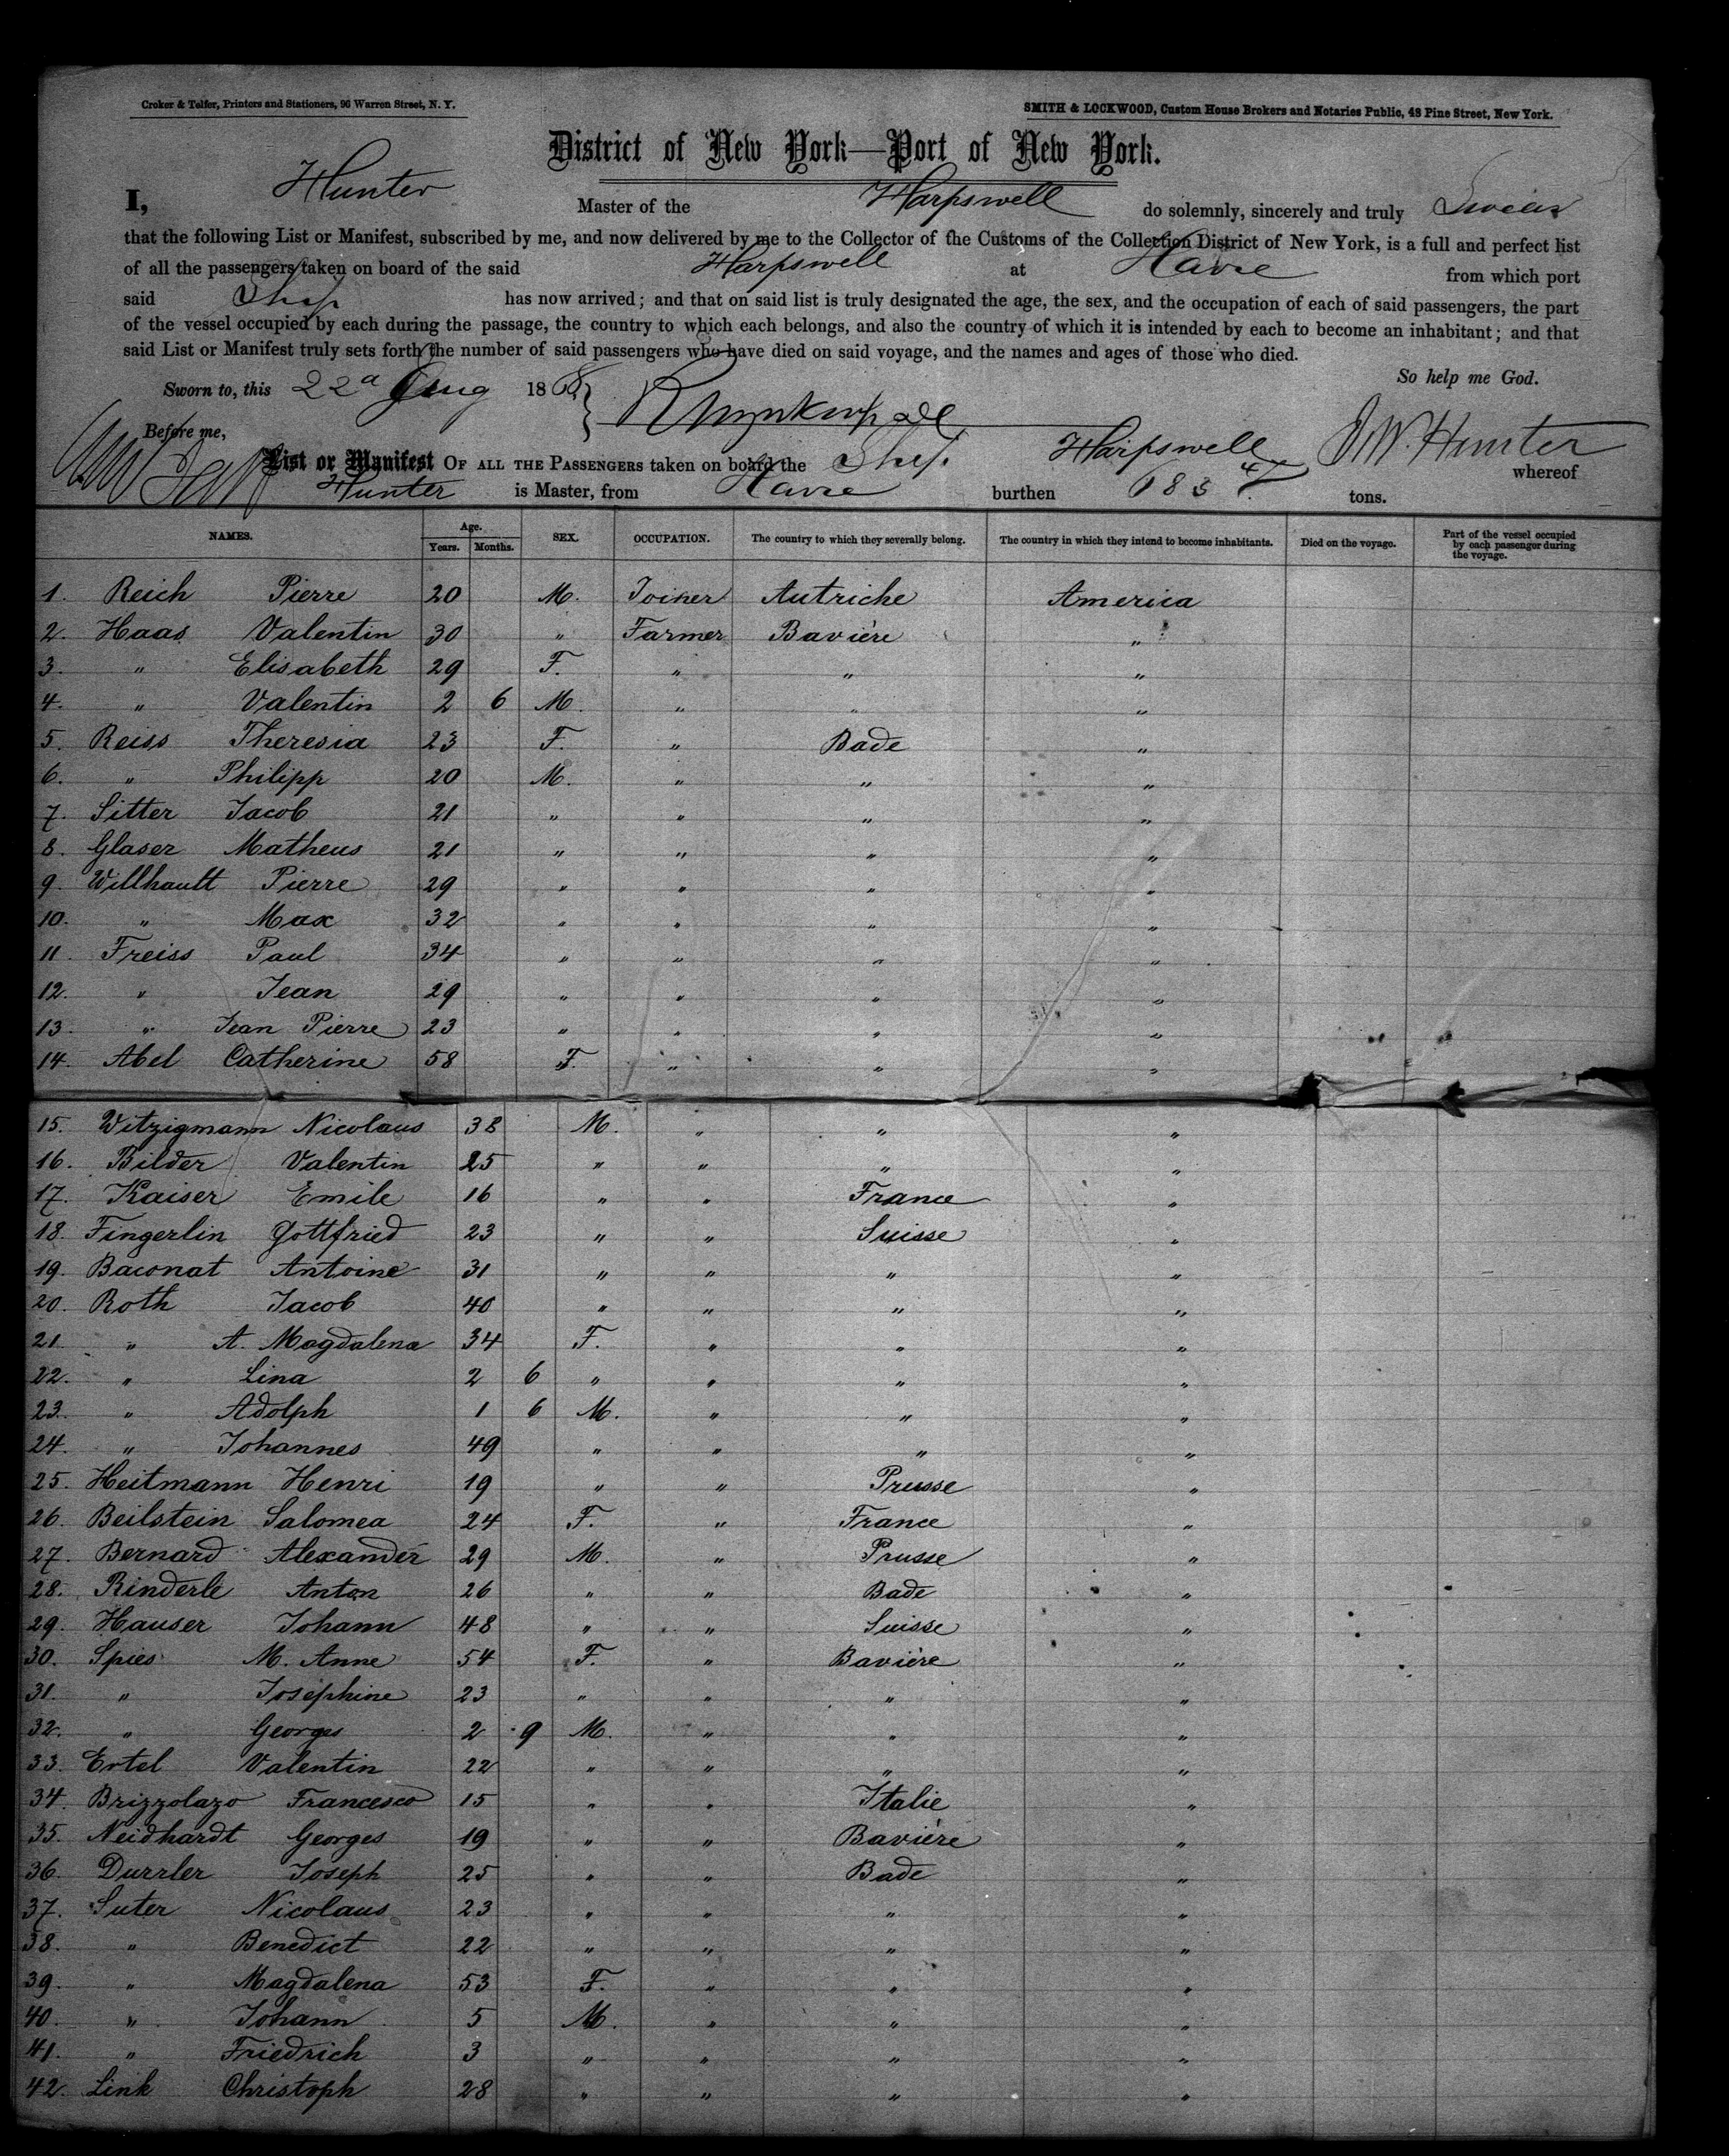 Croker & Telfer, Printers and Stationers, 96 Warren Street, N. Y.
SMITH & LOCKWOOD, Custom House Brokers and Notaries Public, 48 Pine Street, New York.
District of New York—Port of New York.
I, Hunter Master of the Harpswell do solemnly, sincerely and truly Swear
that the following List or Manifest, subscribed by me, and now delivered by me to the Collector of the Customs of the Collection District of New York, is a full and perfect list
of all the passengers taken on board of the said Harpswell at Havre from which port
said Ship has now arrived; and that on said list is truly designated the age, the sex, and the occupation of each of said passengers, the part
of the vessel occupied by each during the passage, the country to which each belongs, and also the country of which it is intended by each to become an inhabitant; and that
said List or Manifest truly sets forth the number of said passengers who have died on said voyage, and the names and ages of those who died.
So help me God.
Sworn to, this 22d Aug 1868
Before me, J W. Hunter
List or Manifest OF ALL THE PASSENGERS taken on board the Ship Harpswell whereof
Hunter is Master, from Havre burthen tons.
NAMES. Age. Years. Months. SEX. OCCUPATION. The country to which they severally belong. The country in which they intend to become inhabitants. Died on the voyage. Part of the vessel occupied by each passenger during the voyage.
1. Reich Pierre 20 M. Joiner Autriche America
2. Haas Valentin 30 " Farmer Bavière "
3. " Elisabeth 29 F. " " "
4. " Valentin 2 6 M. " " "
5. Reiss Theresia 23 F. " Bade "
6. " Philipp 20 M. " " "
7. Sitter Jacob 21 " " " "
8. Glaser Matheus 21 " " " "
9. Willhault Pierre 29 " " " "
10. " Max 32 " " " "
11. Freiss Paul 34 " " " "
12. " Jean 29 " " " "
13. " Jean Pierre 23 " " " "
14. Abel Catherine 58 F. " " "
15. Witzigmann Nicolaus 38 M. " " "
16. Bilder Valentin 25 " " " "
17. Kaiser Emile 16 " " France "
18. Fingerlin Gottfried 23 " " Suisse "
19. Baconat Antoine 31 " " " "
20. Roth Jacob 40 " " " "
21. " A. Magdalena 34 F. " " "
22. " Lina 2 6 " " " "
23. " Adolph 1 6 M. " " "
24. " Johannes 49 " " " "
25. Heitmann Henri 19 " " Prusse "
26. Beilstein Salomea 24 F. " France "
27. Bernard Alexander 29 M. " Prusse "
28. Rinderle Anton 26 " " Bade "
29. Hauser Johann 48 " " Suisse "
30. Spies M. Anne 54 F. " Bavière "
31. " Josephine 23 " " " "
32. " Georges 2 9 M. " " "
33. Ertel Valentin 22 " " " "
34. Brizzolazo Francesco 15 " " Italie "
35. Neidhardt Georges 19 " " Bavière "
36. Durrler Joseph 25 " " Bade "
37. Suter Nicolaus 23 " " " "
38. " Benedict 22 " " " "
39. " Magdalena 53 F. " " "
40. " Johann 5 M. " " "
41. " Friedrich 3 " " " "
42. Link Christoph 28 " " " "